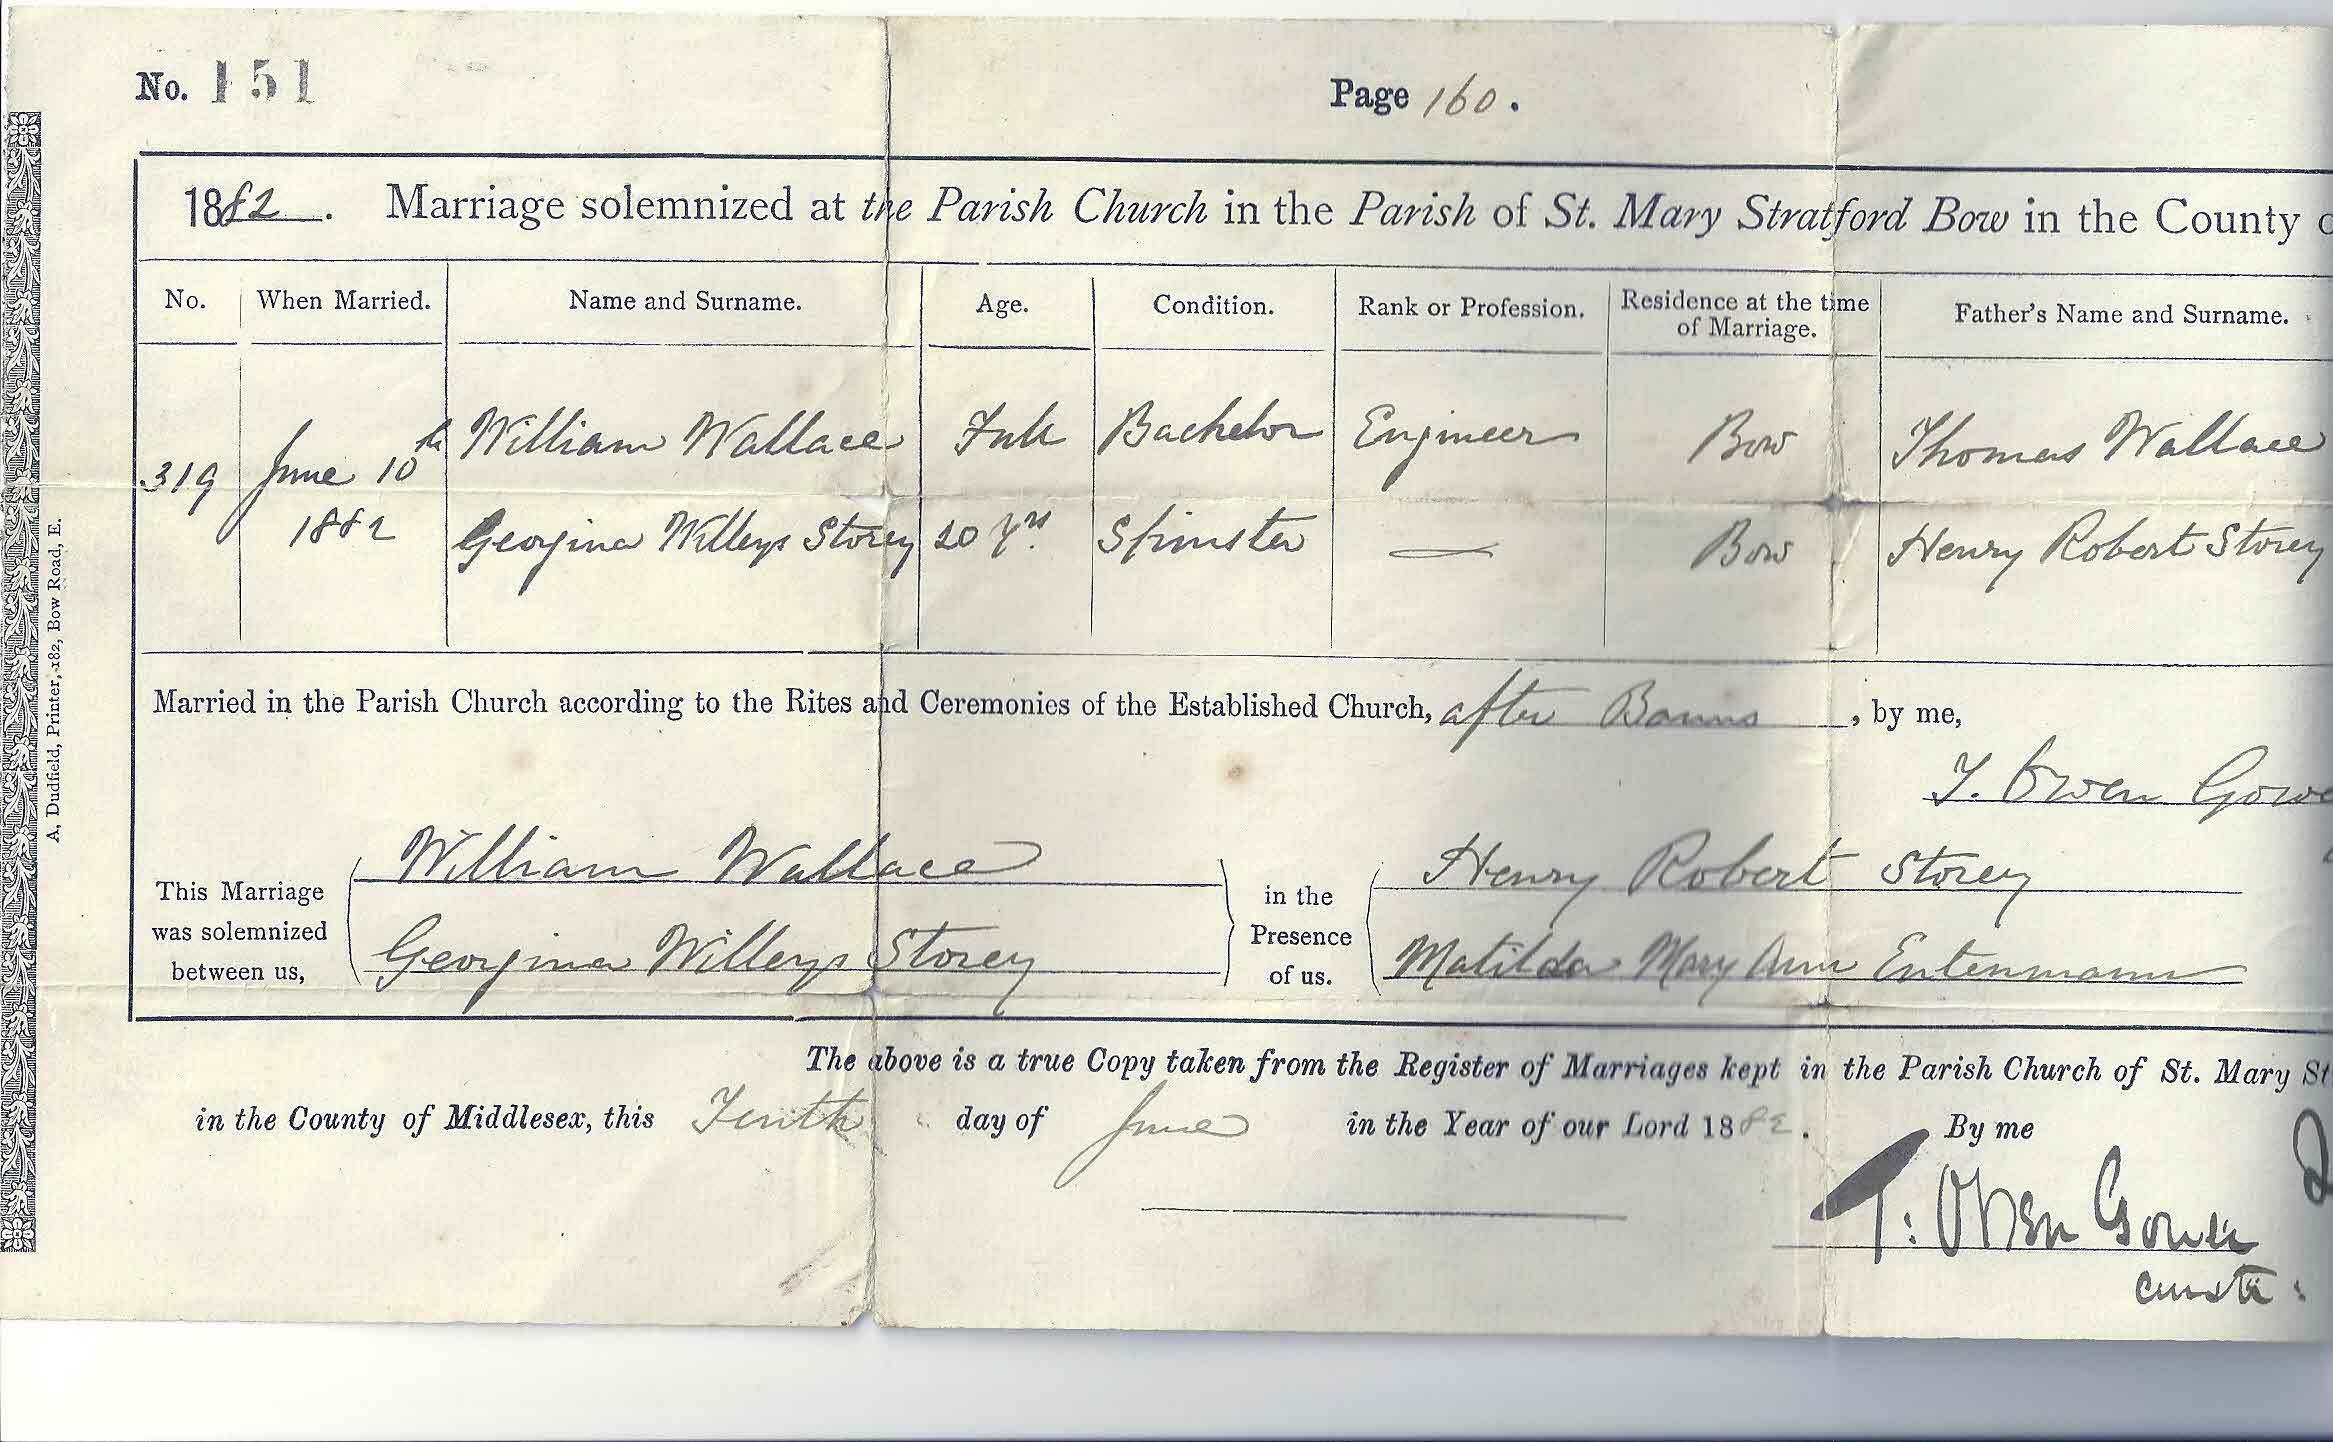 No. 151
Page 160.
1882. Marriage solemnized at the Parish Church in the Parish of St. Mary Stratford Bow in the County o
No. When Married. Name and Surname. Age. Condition. Rank or Profession. Residence at the time of Marriage. Father's Name and Surname.
319 June 10th 1882
William Wallace Full Bachelor Engineer Bow Thomas Wallace
Georgina Willeys Storey 20 Yrs. Spinster — Bow Henry Robert Storey
Married in the Parish Church according to the Rites and Ceremonies of the Established Church, after Banns, by me,
T. Owen Gowe
This Marriage
was solemnized
between us,
William Wallace
Georgina Willeys Storey
in the
Presence
of us.
Henry Robert Storey
Matilda Mary Ann Entenmann
The above is a true Copy taken from the Register of Marriages kept in the Parish Church of St. Mary St
in the County of Middlesex, this Tenth day of June in the Year of our Lord 1882. By me
T: Owen Gower
A, Dudfield, Printer, 182, Bow Road, E.